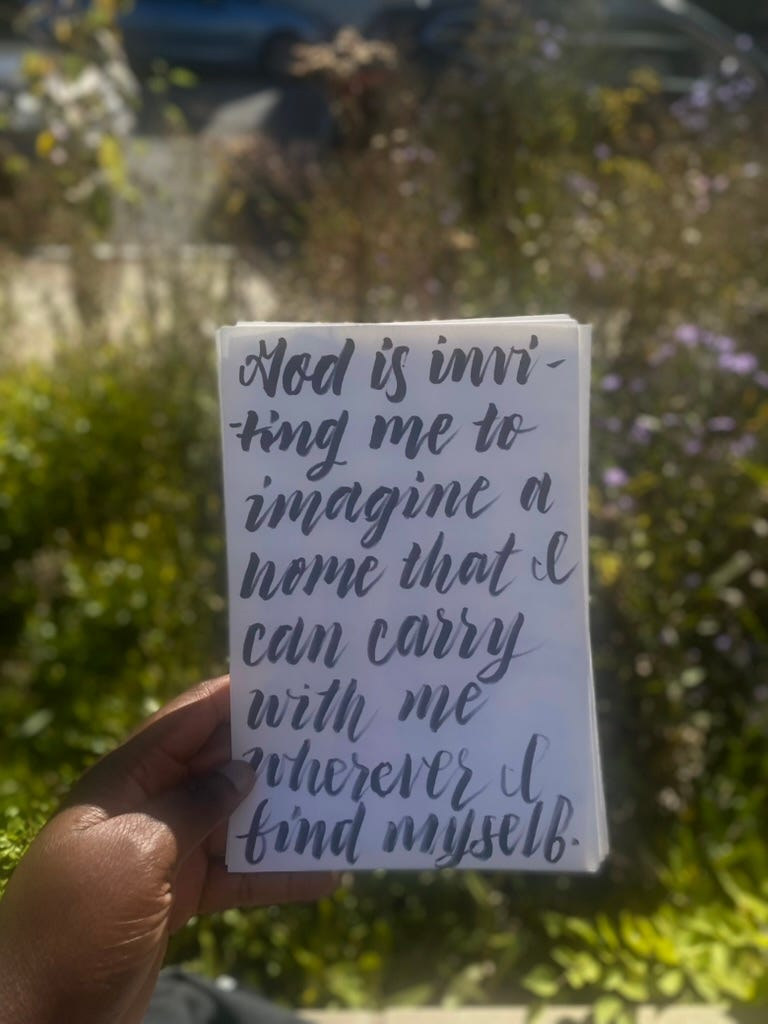 God is invi-
-ting me to
imagine a
home that I
can carry
with me
wherever I
find myself.